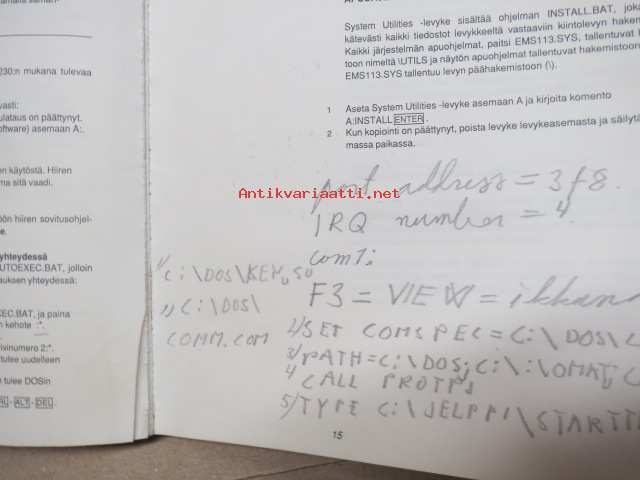 230:n mukana tulevaa
vasti:
ulataus on päättynyt.
oftware) asemaan A:,
en käytöstä. Hiiren
ma sitä vaadi.
öön hiiren sovitusohjel-
yhteydessä
UTOEXEC.BAT, jolloin
auksen yhteydessä:
EC.BAT, ja paina
n kehote :*.
ivinumero 2:*.
tulee uudelleen
n tulee DOSin
ALT - DEL.
System Utilities -levyke sisältää ohjelman INSTALL.BAT, joka
kätevästi kaikki tiedostot levykkeeltä vastaaviin kiintolevyn hakem
Kaikki järjestelmän apuohjelmat, paitsi EMS113.SYS, tallentuvat
toon nimeltä \UTILS ja näytön apuohjelmat tallentuvat hakemistoon
EMS113.SYS tallentuu levyn päähakemistoon (\).
1 Aseta System Utilities -levyke asemaan A ja kirjoita komento
A:INSTALL ENTER.
2 Kun kopiointi on päättynyt, poista levyke levykeasemasta ja säilytä
massa paikassa.
port address = 3f8.
Antikvariaatti.net
IRQ number = 4.
com1:
F3 = VIEW = ikkuna
1/ C:\DOS\
COMM.COM
2/SET COMSPEC=C:\DOS\C
3/PATH=C:\DOS;C:\
4 CALL
5/TYPE C:\JELPPI\STARTT
15